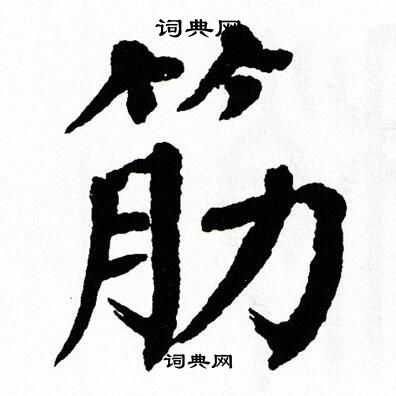 词典网
筋
词典网